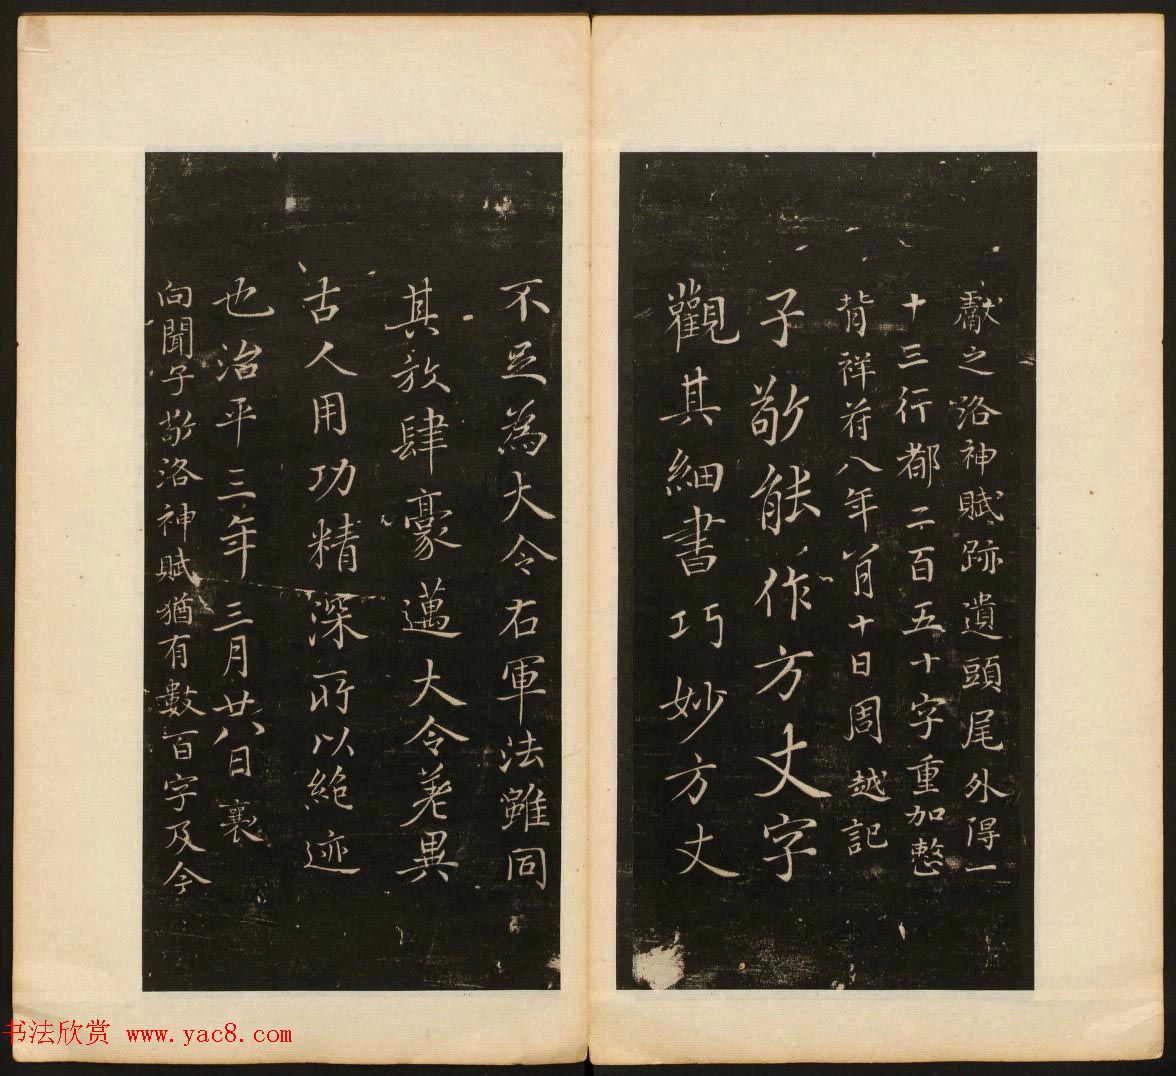 獻之洛神賦跡遺頭尾外得一
十三行都二百五十字重加整
背祥符八年八月十日周越記
子敬能作方丈字
觀其細書巧妙方丈
不足為大令右軍法雖同
其放肆豪邁大令差異
古人用功精深所以絶迹
也治平三年三月廿八日襄
向聞子敬洛神賦猶有數百字及今
书法欣赏 www.yac8.com